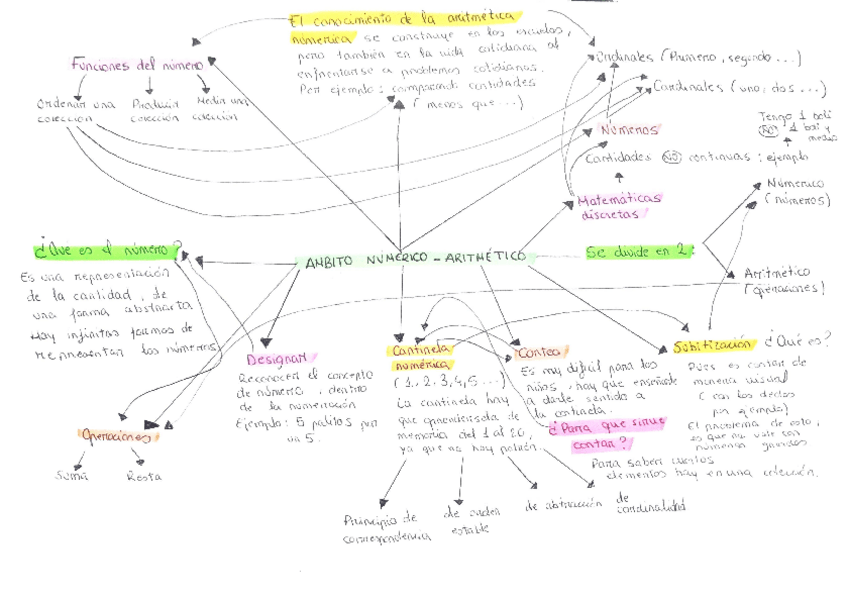 El conocimiento de la aritmética
númerica se construye en las escuelas,
pero también en la vida cotidiana al
enfrentarse a problemas cotidianos.
Por ejemplo: comparando cantidades
(menos que...)
Funciones del número
Ordenar una
colección
Producir
colección
Medir una
colección
Ordinales (Primero, segundo...)
Cardinales (uno, dos...)
Números
Tengo 1 boli
NO 1 boli y
medio
Cantidades NO continuas: ejemplo
Matemáticas
discretas
Númerico
(números)
¿Que es el número?
Es una representación
de la cantidad, de
una forma abstracta
Hay infinitas formas de
representar los números
AMBITO NUMÉRICO-ARITMÉTICO
Se divide en 2:
Aritmético
(operaciones)
Designar
Reconocer el concepto
de número, dentro
de la numeración
Ejemplo: 5 palitos por
un 5.
Cantinela
numérica
(1, 2, 3, 4, 5...)
La cantinela hay
que aprenderse de
memoria del 1 al 20,
ya que no hay patrón.
Conteo
Es muy difícil para los
niños, hay que enseñarle
a darle sentido a
la cantinela.
¿Para que sirve
contar?
Para saber cuantos
elementos hay en una colección.
Subitización ¿Qué es?
Pues es contar de
manera visual
(con los dedos
por ejemplo)
El problema de esto,
es que no vale con
números grandes
Operaciones
Suma
Resta
Principio de
correspondencia
de orden
estable
de abstracción
de
cardinalidad